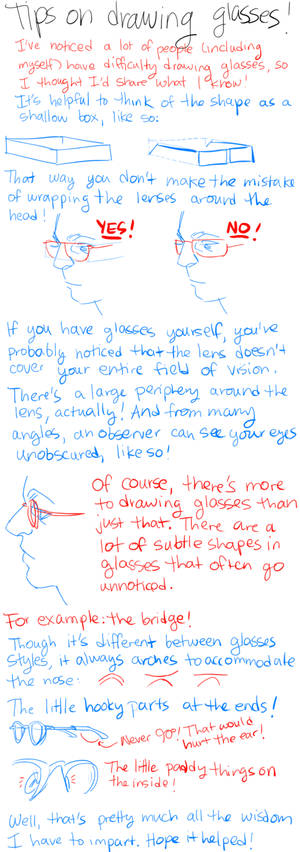 tips on drawing glasses!
I've noticed a lot of people (including
myself) have difficulty drawing glasses, so
I thought I'd share what I know!
It's helpful to think of the shape as a
shallow box, like so:
That way you don't make the mistake
of wrapping the lenses around the
head!
YES!
NO!
If you have glasses yourself, you've
probably noticed that the lens doesn't
cover your entire field of vision.
There's a large periphery around the
lens, actually! And from many
angles, an observer can see your eyes
unobscured, like so!
Of course, there's more
to drawing glasses than
just that. There are a
lot of subtle shapes in
glasses that often go
unnoticed.
For example: the bridge!
Though it's different between glasses
styles, it always arches to accommodate
the nose.
The little hooky parts at the ends!
Never 90°! That would
hurt the ear!
The little paddy things on
the inside!
Well, that's pretty much all the wisdom
I have to impart. Hope it helped!